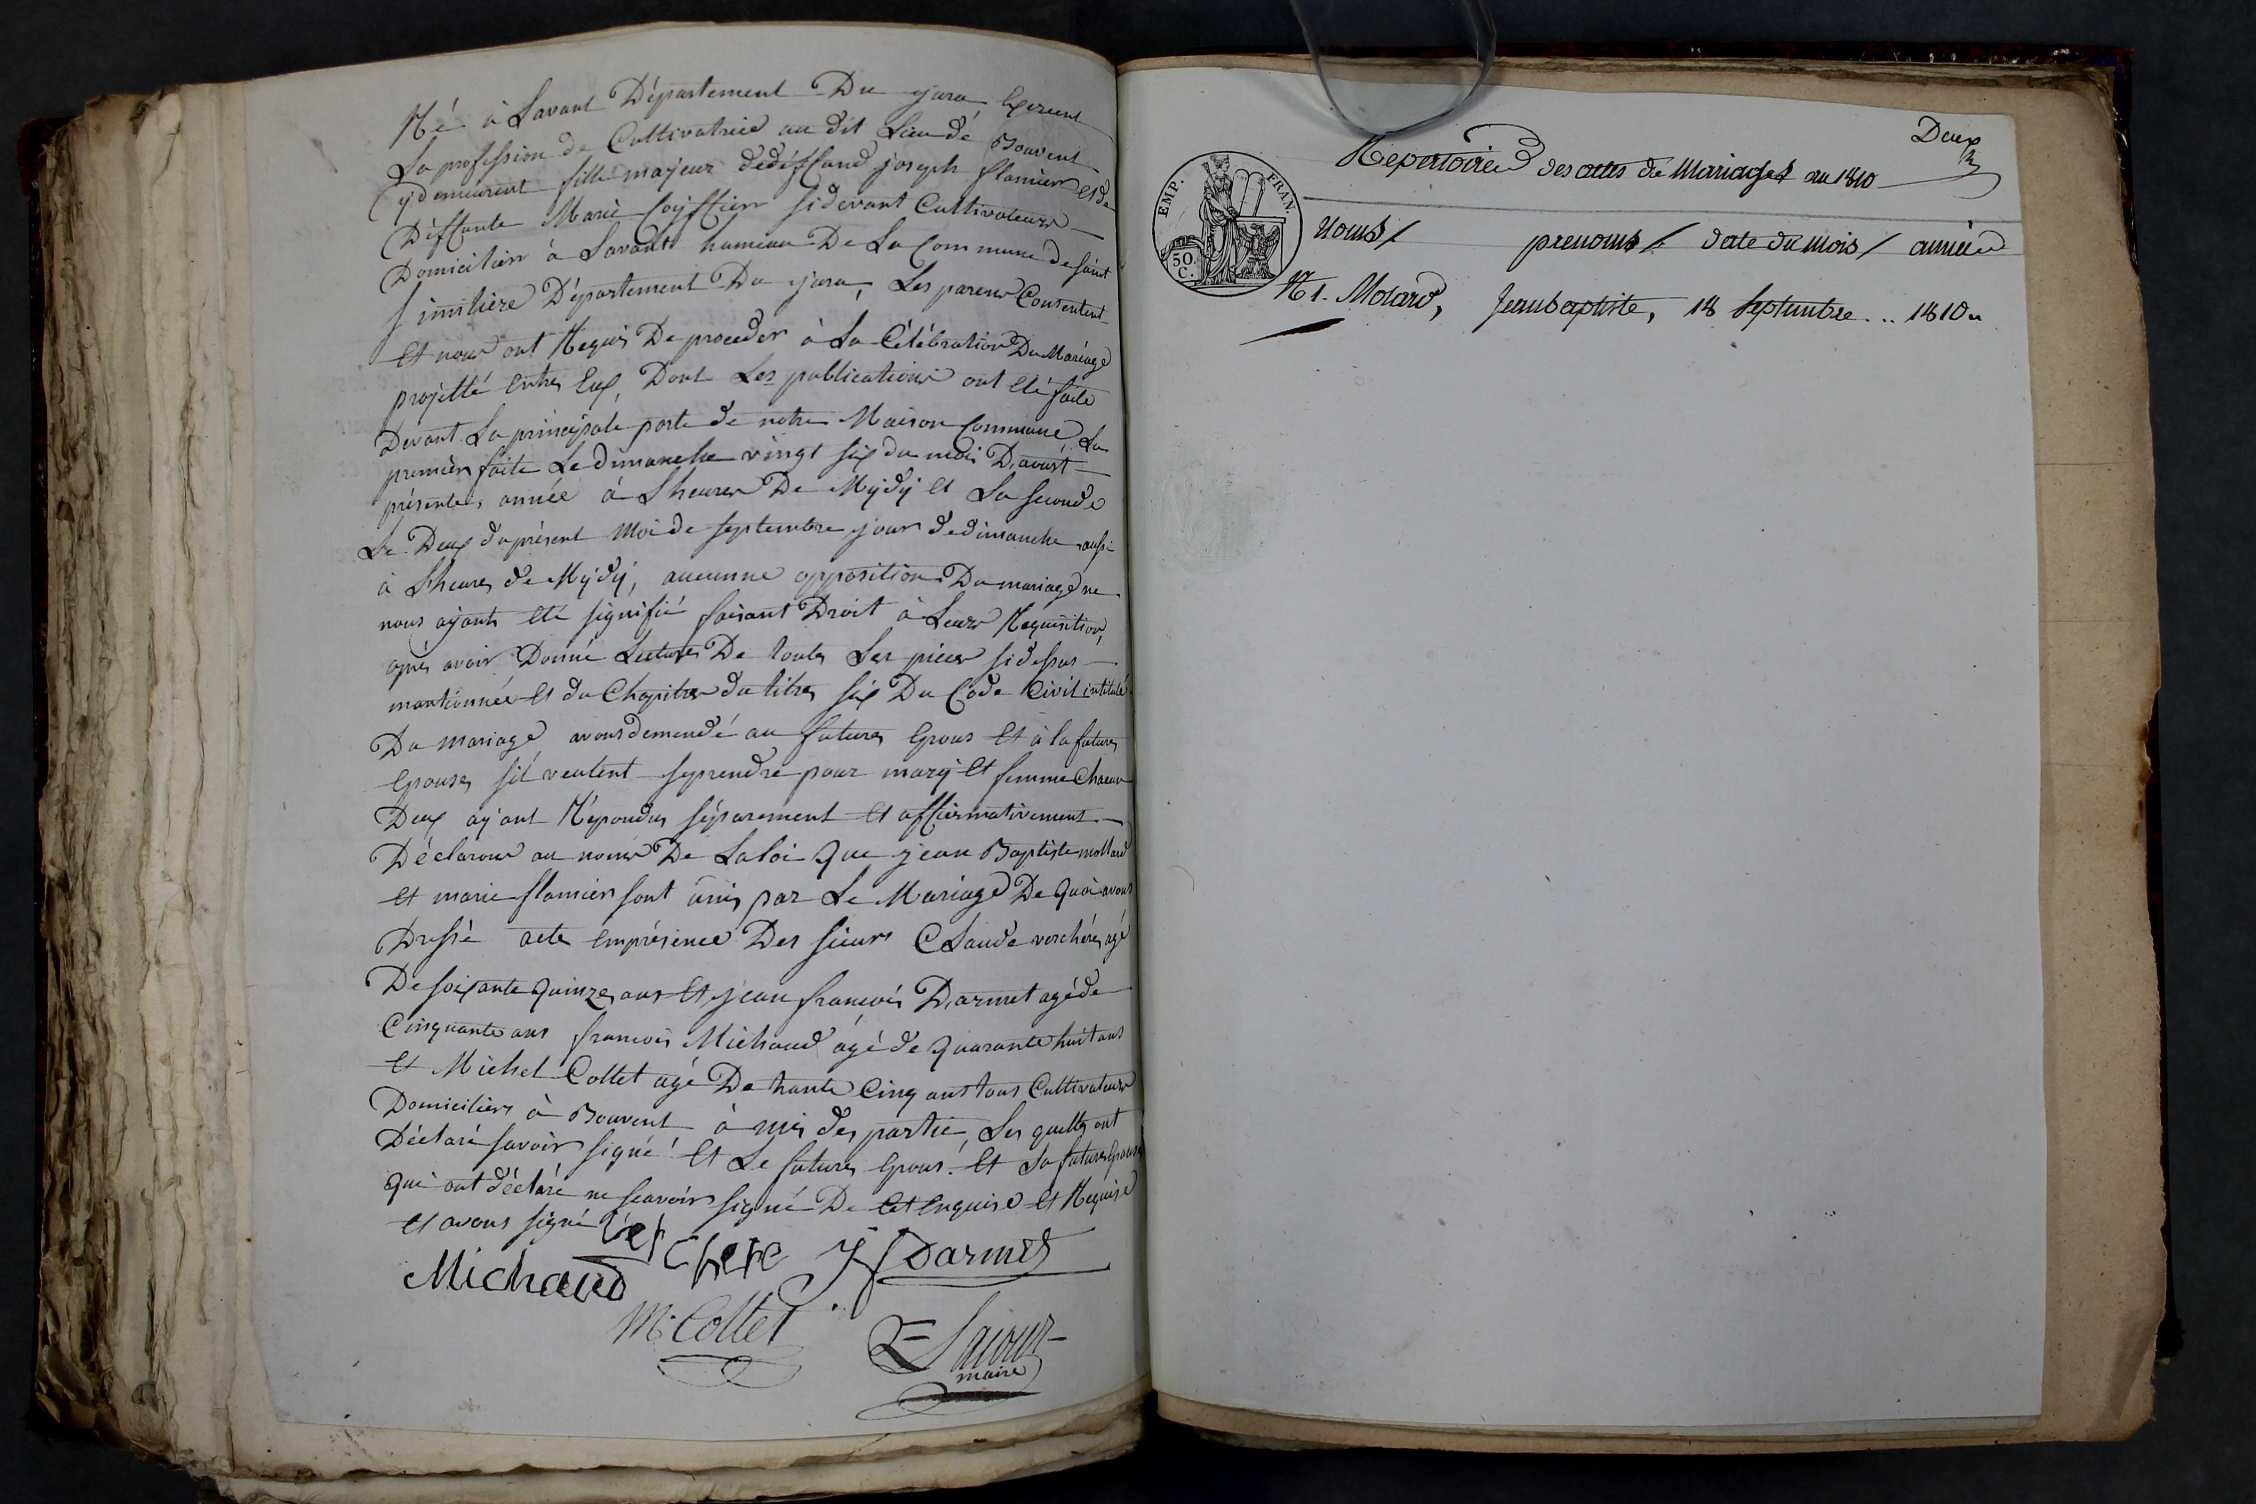 Né à Lavant Département Du jura, Exerceant
La profession de Cultivatrice au dit Lieu de Bouvent
y demeurent fille majeur dedéffand joseph flamier et de
Déffante Marie Coÿffier sidevant Cultivateurs
Domicilier à Lavant hameau De La Commune de saint
Similiere Département Du jura, Les parens Consentent
Et nous ont Requis De proceder à La Célébration Du Mariage
projetté Entre Eux, Dont Les publications ont Eté faite
Devant La principale porte de notre Maison Commune La
premier faite Le dimanche vingt six du mois D'avust
présente année à Lheures De Mÿdÿ Et La seconde
Le Deux du présent Moi de septembre jour de dimanche aussi
à Lheures de Mÿdÿ, aucunne opposition Du mariage ne
nous ayants Eté signifié faisant Droit à Leurs Requisition,
après avoir Donné Lecture De toute Les pièces sidessus
mantionnée Et du Chapitre du titre six Du Code Civil intitulé
Du mariage avons demendé au future Epous Et à la future
Epouse sil veulent seprendre pour marÿ Et femme Chacun
Deux ayant Répondus séparement Et affiermativement
Déclarons au noms De Laloi Que jean Baptiste mollard
Et marie flamier sont unis par Le Mariage De Quoi avons
Dressé acte Emprésence Des sieurs Claude verchére agé
De soixante Quinze ans Et jean francois Darmet agé de
Cinquante ans francois Michaud agé de Quarante huit ans
Et Michel Collet agé De trante Cinq ans tous Cultivateurs
Domiciliers à Bouvent à mis des partie, Les quelles ont
Déclaré savoir signé Et Le future Epous Et La future Epouse
Qui ont déclaré ne scavoir signé De Cet Enquise Et Requise
Et avons signé
Verchere
J f Darmet
Michaud
M. Collet
Lacour
maire
Deux
Repertoire des actes de Mariages au 1810
EMP. FRAN.
50. C.
Noms / prenoms / date du mois / année
N 1. Molard, Jean baptiste, 18 septembre .. 1810